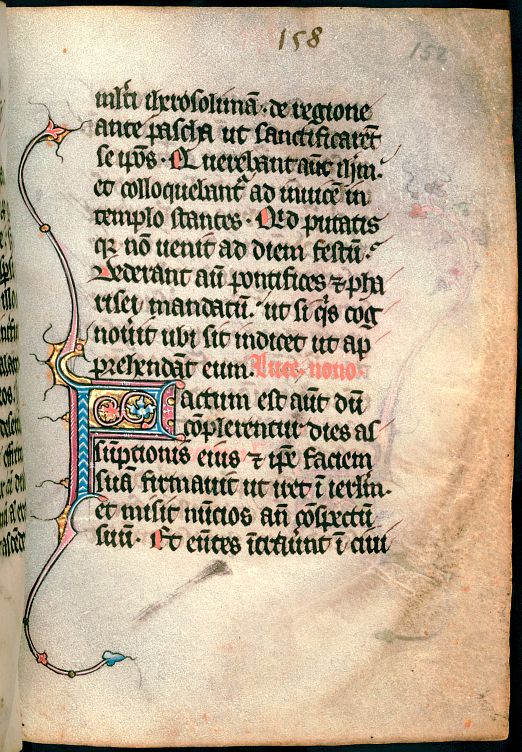 158
152
mlti iherosolimā · de regione
ante pascha ut sanctificarēt
se ip̄os · Querebant aūt ihm̄ ·
et colloquebant̄ ad inuicē in
templo stantes · Qid putatis
qr nō uenit ad diem festū ·
Dederant aū pontifices ⁊ pha
risei mandatū · ut si q̇s cog
nouit ubi sit indicet ut ap
prehendāt eum. Luce · nono ·
Factum est aūt dū
cōplerentur dies as
sūptionis eius ⁊ ip̄e faciem
suā firmauit ut iret ī ierl̄m ·
et misit nūcios añ cōspectū
suū · Et eūtes ītrauūt ī ciui